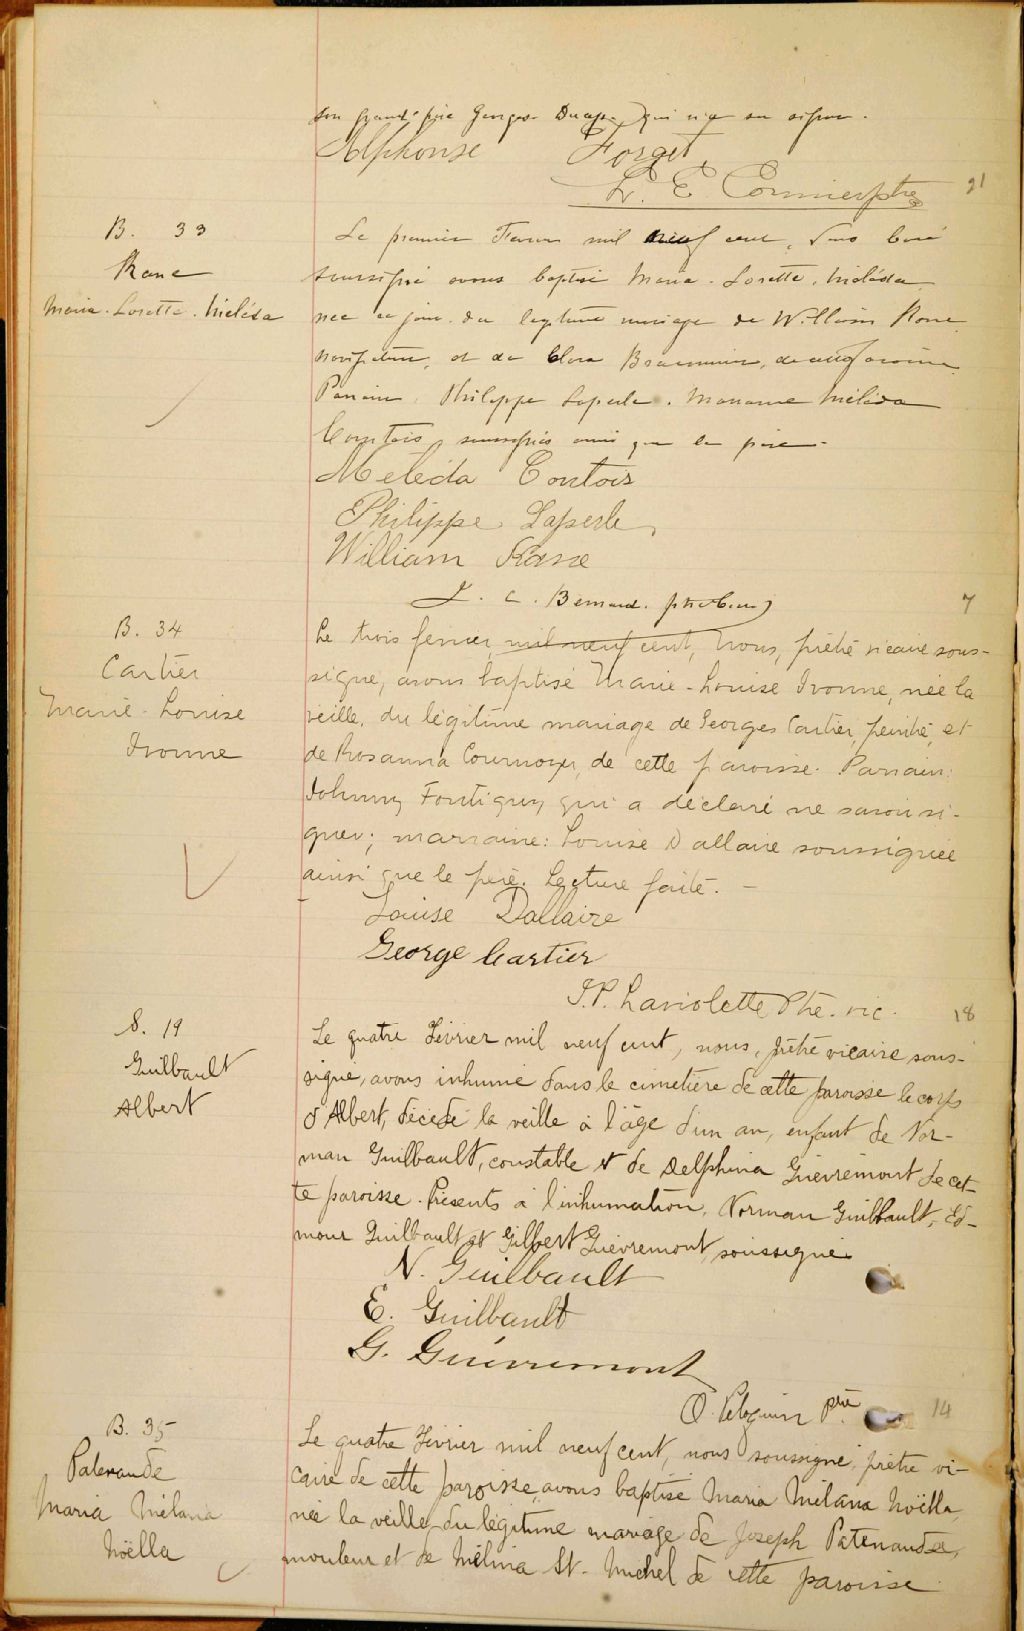 son grand'père Georges qui n'a su signer.
Alphonse Forget
L. E. Cormier ptre
21
B. 33
Maria. Lorette. Méléda
Le premier Février mil neuf cent, Nous Curé
soussigné avons baptisé Maria. Lorette. Méléda
née ce jour du légitime mariage de William
navigateur, et de Clara de cette paroisse.
Parrain, Philippe Laperle. Marraine Méléda
Comtois, soussignés ainsi que le père.
Méléda Contois
Philippe Laperle
William
Bernard. ptre Curé
7
B. 34
Cartier
Marie-Louise
Ivonne
Le trois février, mil neuf cent, Nous, prêtre vicaire sous-
signé, avons baptisé Marie-Louise Ivonne, née la
veille, du légitime mariage de Georges Cartier, peintre, et
de Rosanna Cournoyer, de cette paroisse. Parrain:
Johnny Fortiguy qui a déclaré ne savoir si-
gner; marraine: Louise Dallaire soussignée
ainsi que le père. Lecture faite. -
Louise Dallaire
George Cartier
J.P. Laviolette Ptre. vic.
18
S. 19
Guilbault
Albert
Le quatre Février mil neuf cent, nous, prêtre vicaire sous-
signé, avons inhumé dans le cimetière de cette paroisse le corps
d'Albert, décédé la veille à l'âge d'un an, enfant de Nor-
man Guilbault, constable et de Delphina Guèvremont de cet-
te paroisse. Présents à l'inhumation, Norman Guilbault, Ed-
mour Guilbault et Gilbert Guèvremont, soussignés
N. Guilbault
E. Guilbault
G. Guévremont
O. Péloquin ptre
14
B. 35
Patenaude
Maria Mélana
Noëlla
Le quatre Février mil neuf cent, nous soussigné, prêtre vi-
caire de cette paroisse, avons baptisé Maria Mélana Noëlla,
née la veille, du légitime mariage de Joseph Patenaude,
mouleur et de Mélina St. Michel de cette paroisse